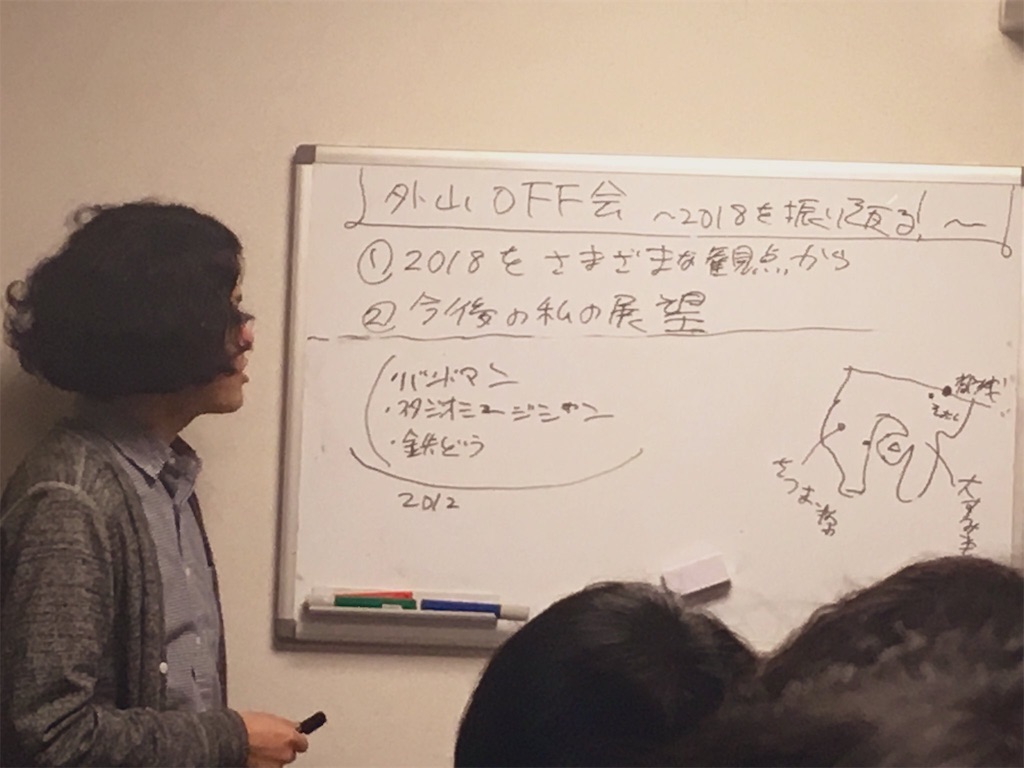 外山OFF会 ～2018を振り返る！～
①2018をさまざまな観点から
②今後の私の展望
・バンドマン
・スタジオミュージシャン
・鉄どう
2012
さつま
大すみ